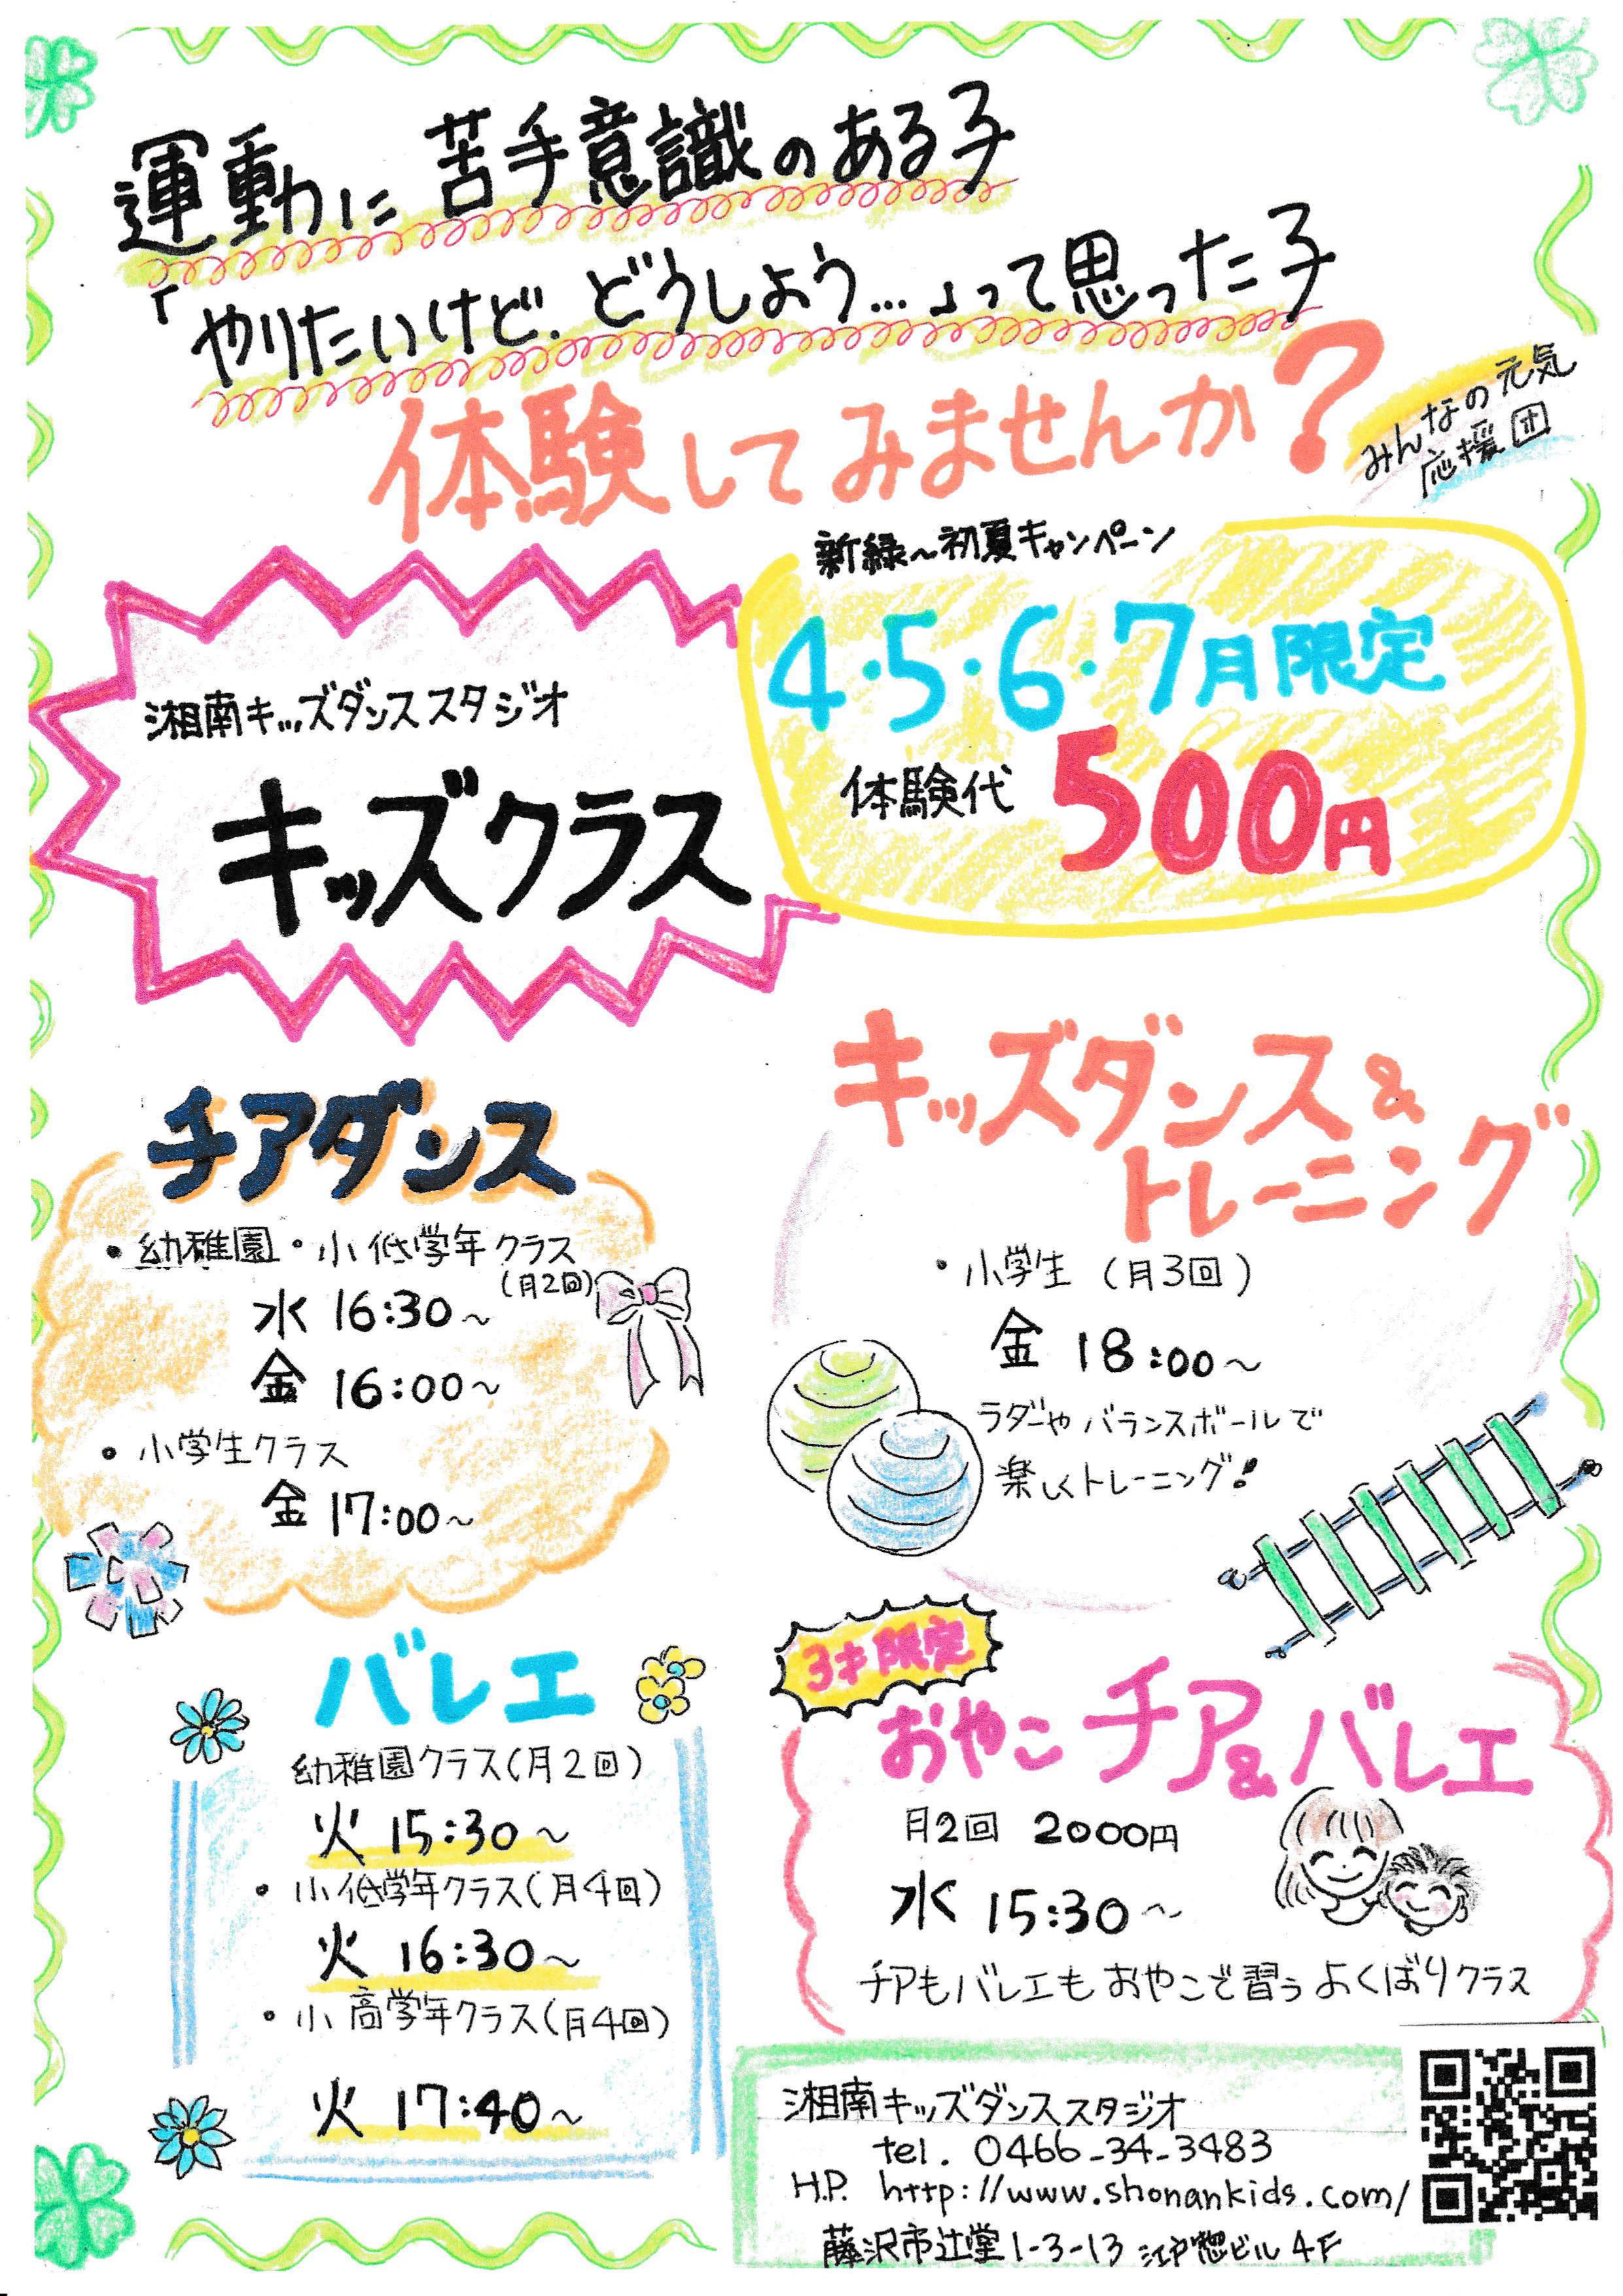 運動に苦手意識のある子
「やりたいけど、どうしよう…」って思った子
体験してみませんか?
みんなの元気
応援団
新緑〜初夏キャンペーン
4・5・6・7月限定
体験代 500円
湘南キッズダンススタジオ
キッズクラス
チアダンス
・幼稚園・小低学年クラス
(月2回)
水 16:30〜
金 16:00〜
・小学生クラス
金 17:00〜
キッズダンス&
トレーニング
・小学生(月3回)
金 18:00〜
ラダーやバランスボールで
楽しくトレーニング!
バレエ
幼稚園クラス(月2回)
火 15:30〜
・小低学年クラス(月4回)
火 16:30〜
・小高学年クラス(月4回)
火 17:40〜
3才限定
おやこチア&バレエ
月2回 2000円
水 15:30〜
チアもバレエもおやこで習うよくばりクラス
湘南キッズダンススタジオ
tel. 0466-34-3483
H.P. http://www.shonankids.com/
藤沢市辻堂1-3-13 江戸惣ビル4F